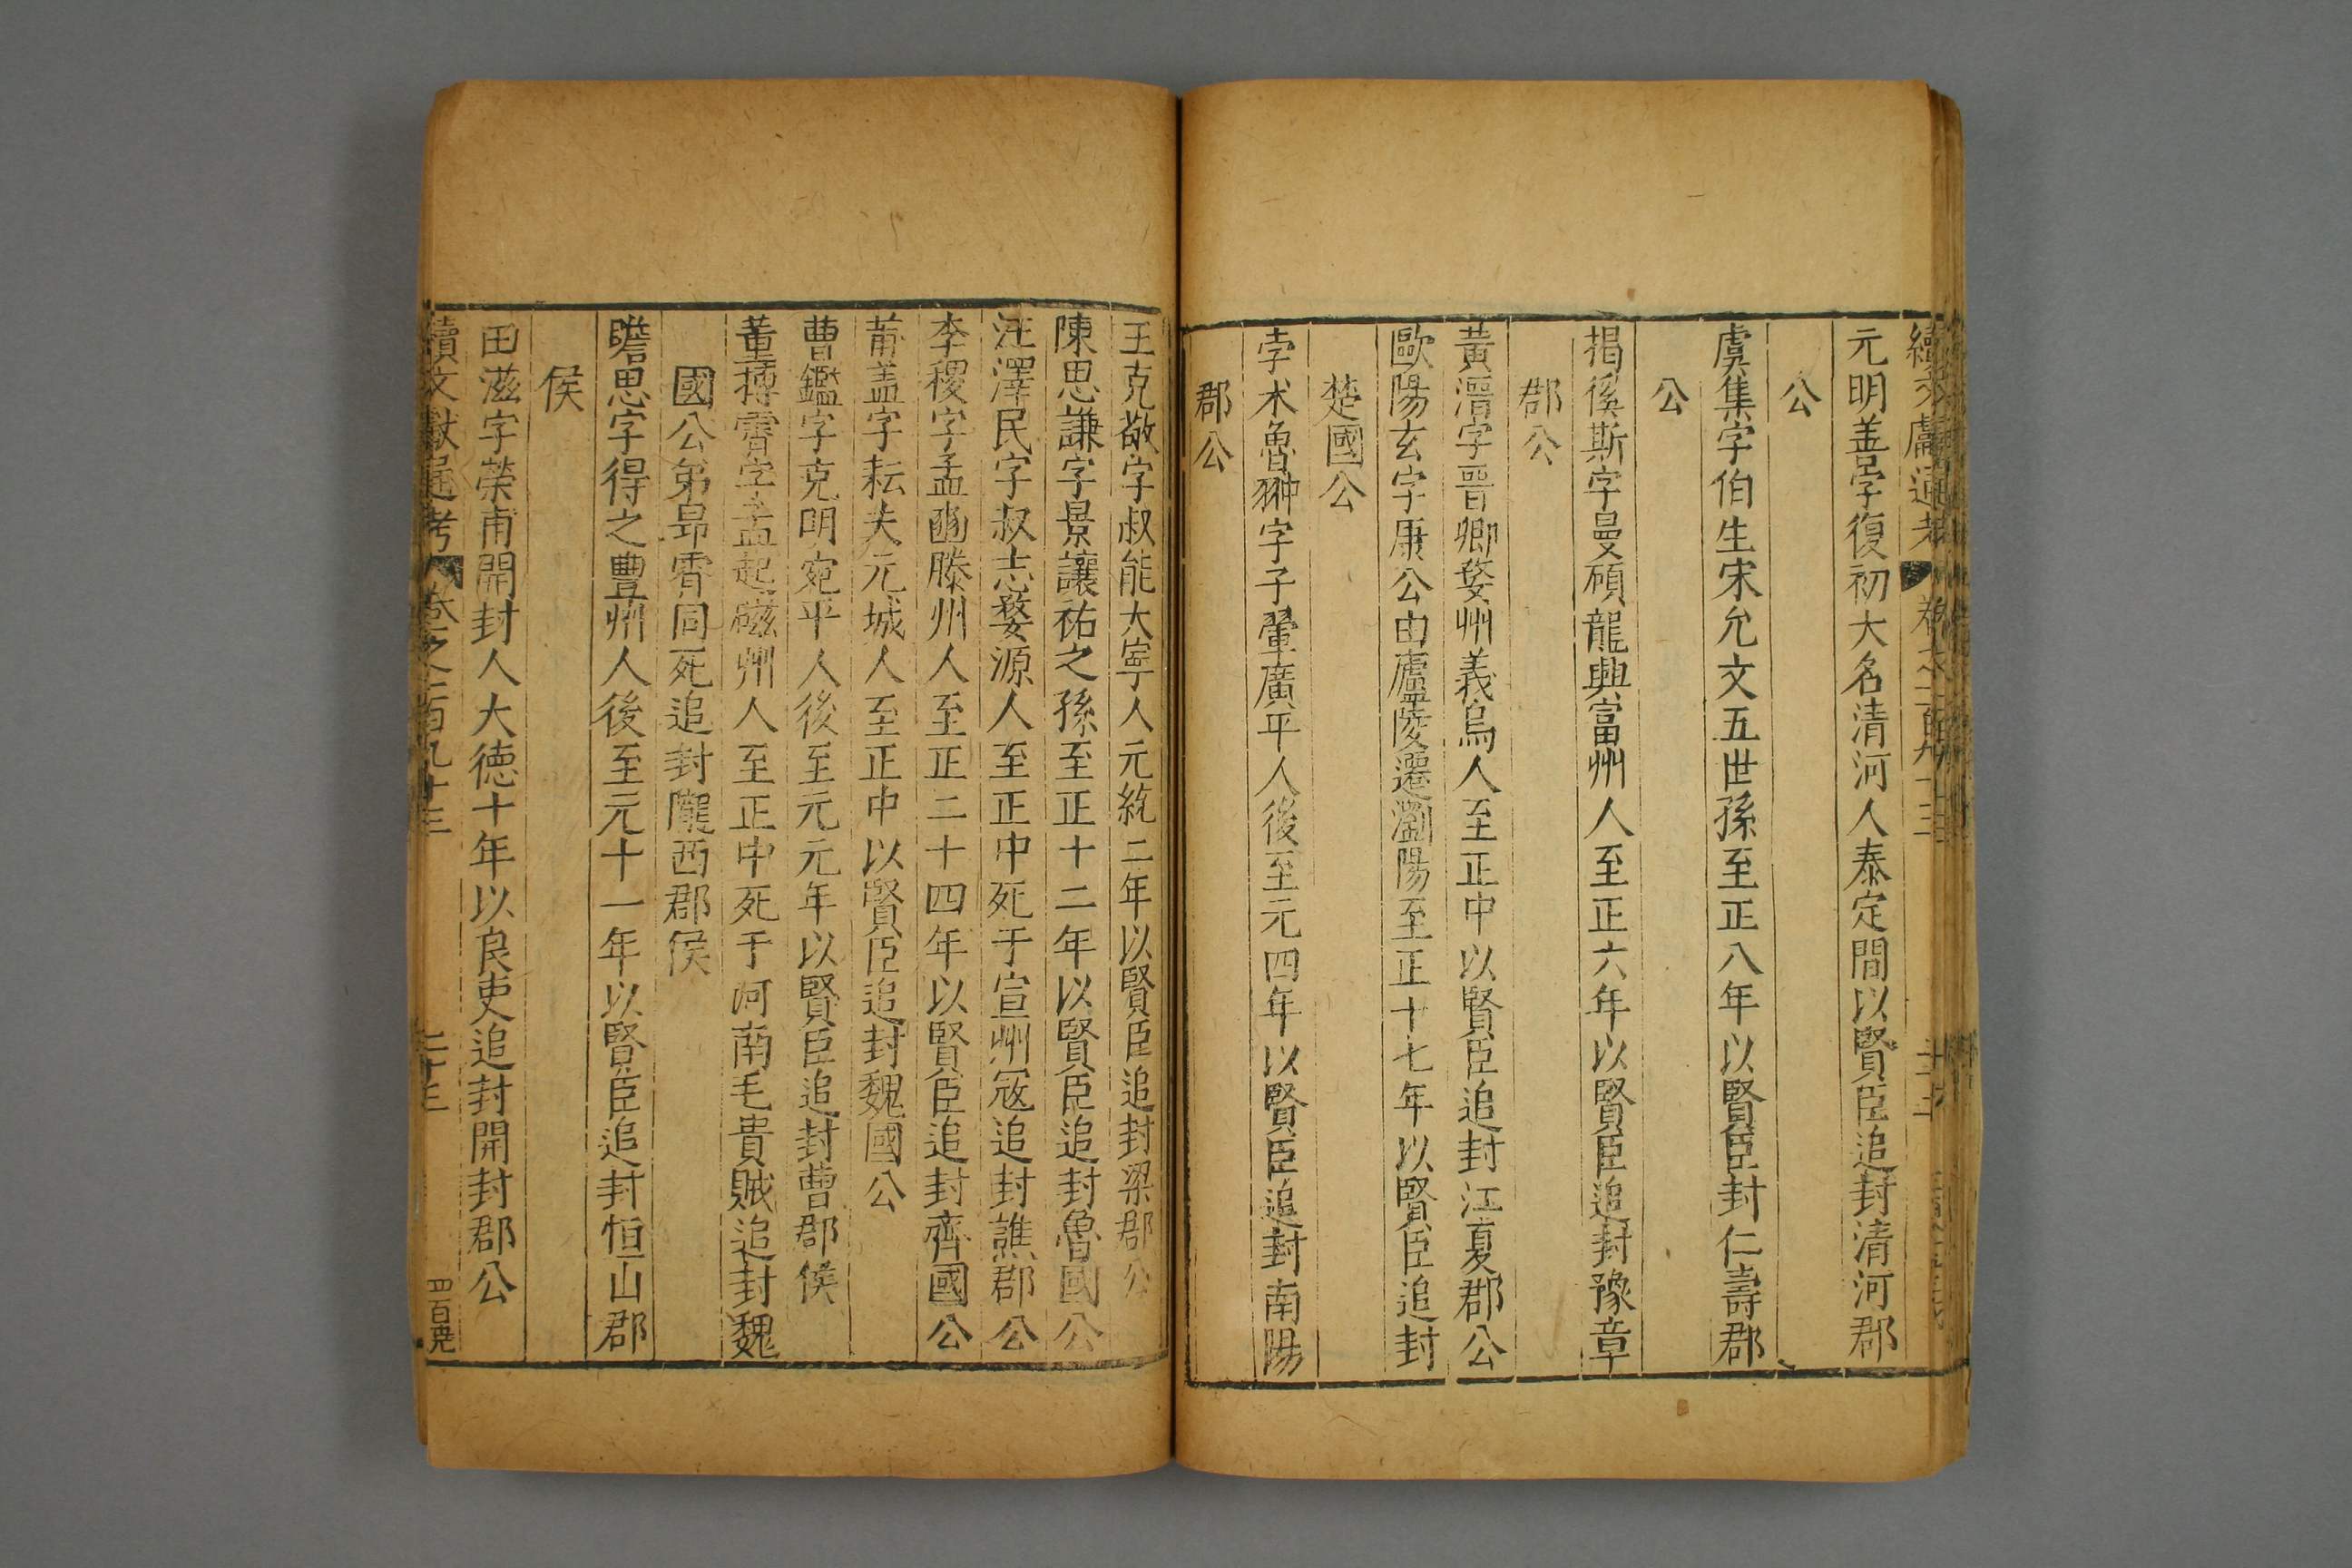 元明善字復初大名清河人泰定間以賢臣追封清河郡
公
虞集字伯生宋允文五世孫至正八年以賢臣封仁壽郡
公
揭傒斯字曼碩龍興富州人至正六年以賢臣追封豫章
郡公
黃溍字晉卿婺州義烏人至正中以賢臣追封江夏郡公
歐陽玄字康公由廬陵遷瀏陽至正十七年以賢臣追封
楚國公
孛术魯翀字子翬廣平人後至元四年以賢臣追封南陽
郡公
王克敬字叔能大寧人元統二年以賢臣追封梁郡公
陳思謙字景讓祐之孫至正十二年以賢臣追封魯國公
汪澤民字叔志婺源人至正中死于宣州冦追封譙郡公
李稷字孟豳滕州人至正二十四年以賢臣追封齊國公
葢字耘夫元城人至正中以賢臣追封魏國公
曹鑑字克明宛平人後至元元年以賢臣追封曹郡侯
董摶霄字孟起磁州人至正中死于河南毛貴賊追封魏
國公弟昻霄同死追封隴西郡侯
瞻思字得之豊州人後至元十一年以賢臣追封恒山郡
侯
田滋字榮甫開封人大德十年以良吏追封開封郡公
續文獻通考 卷之二百九十三 二十三 四百